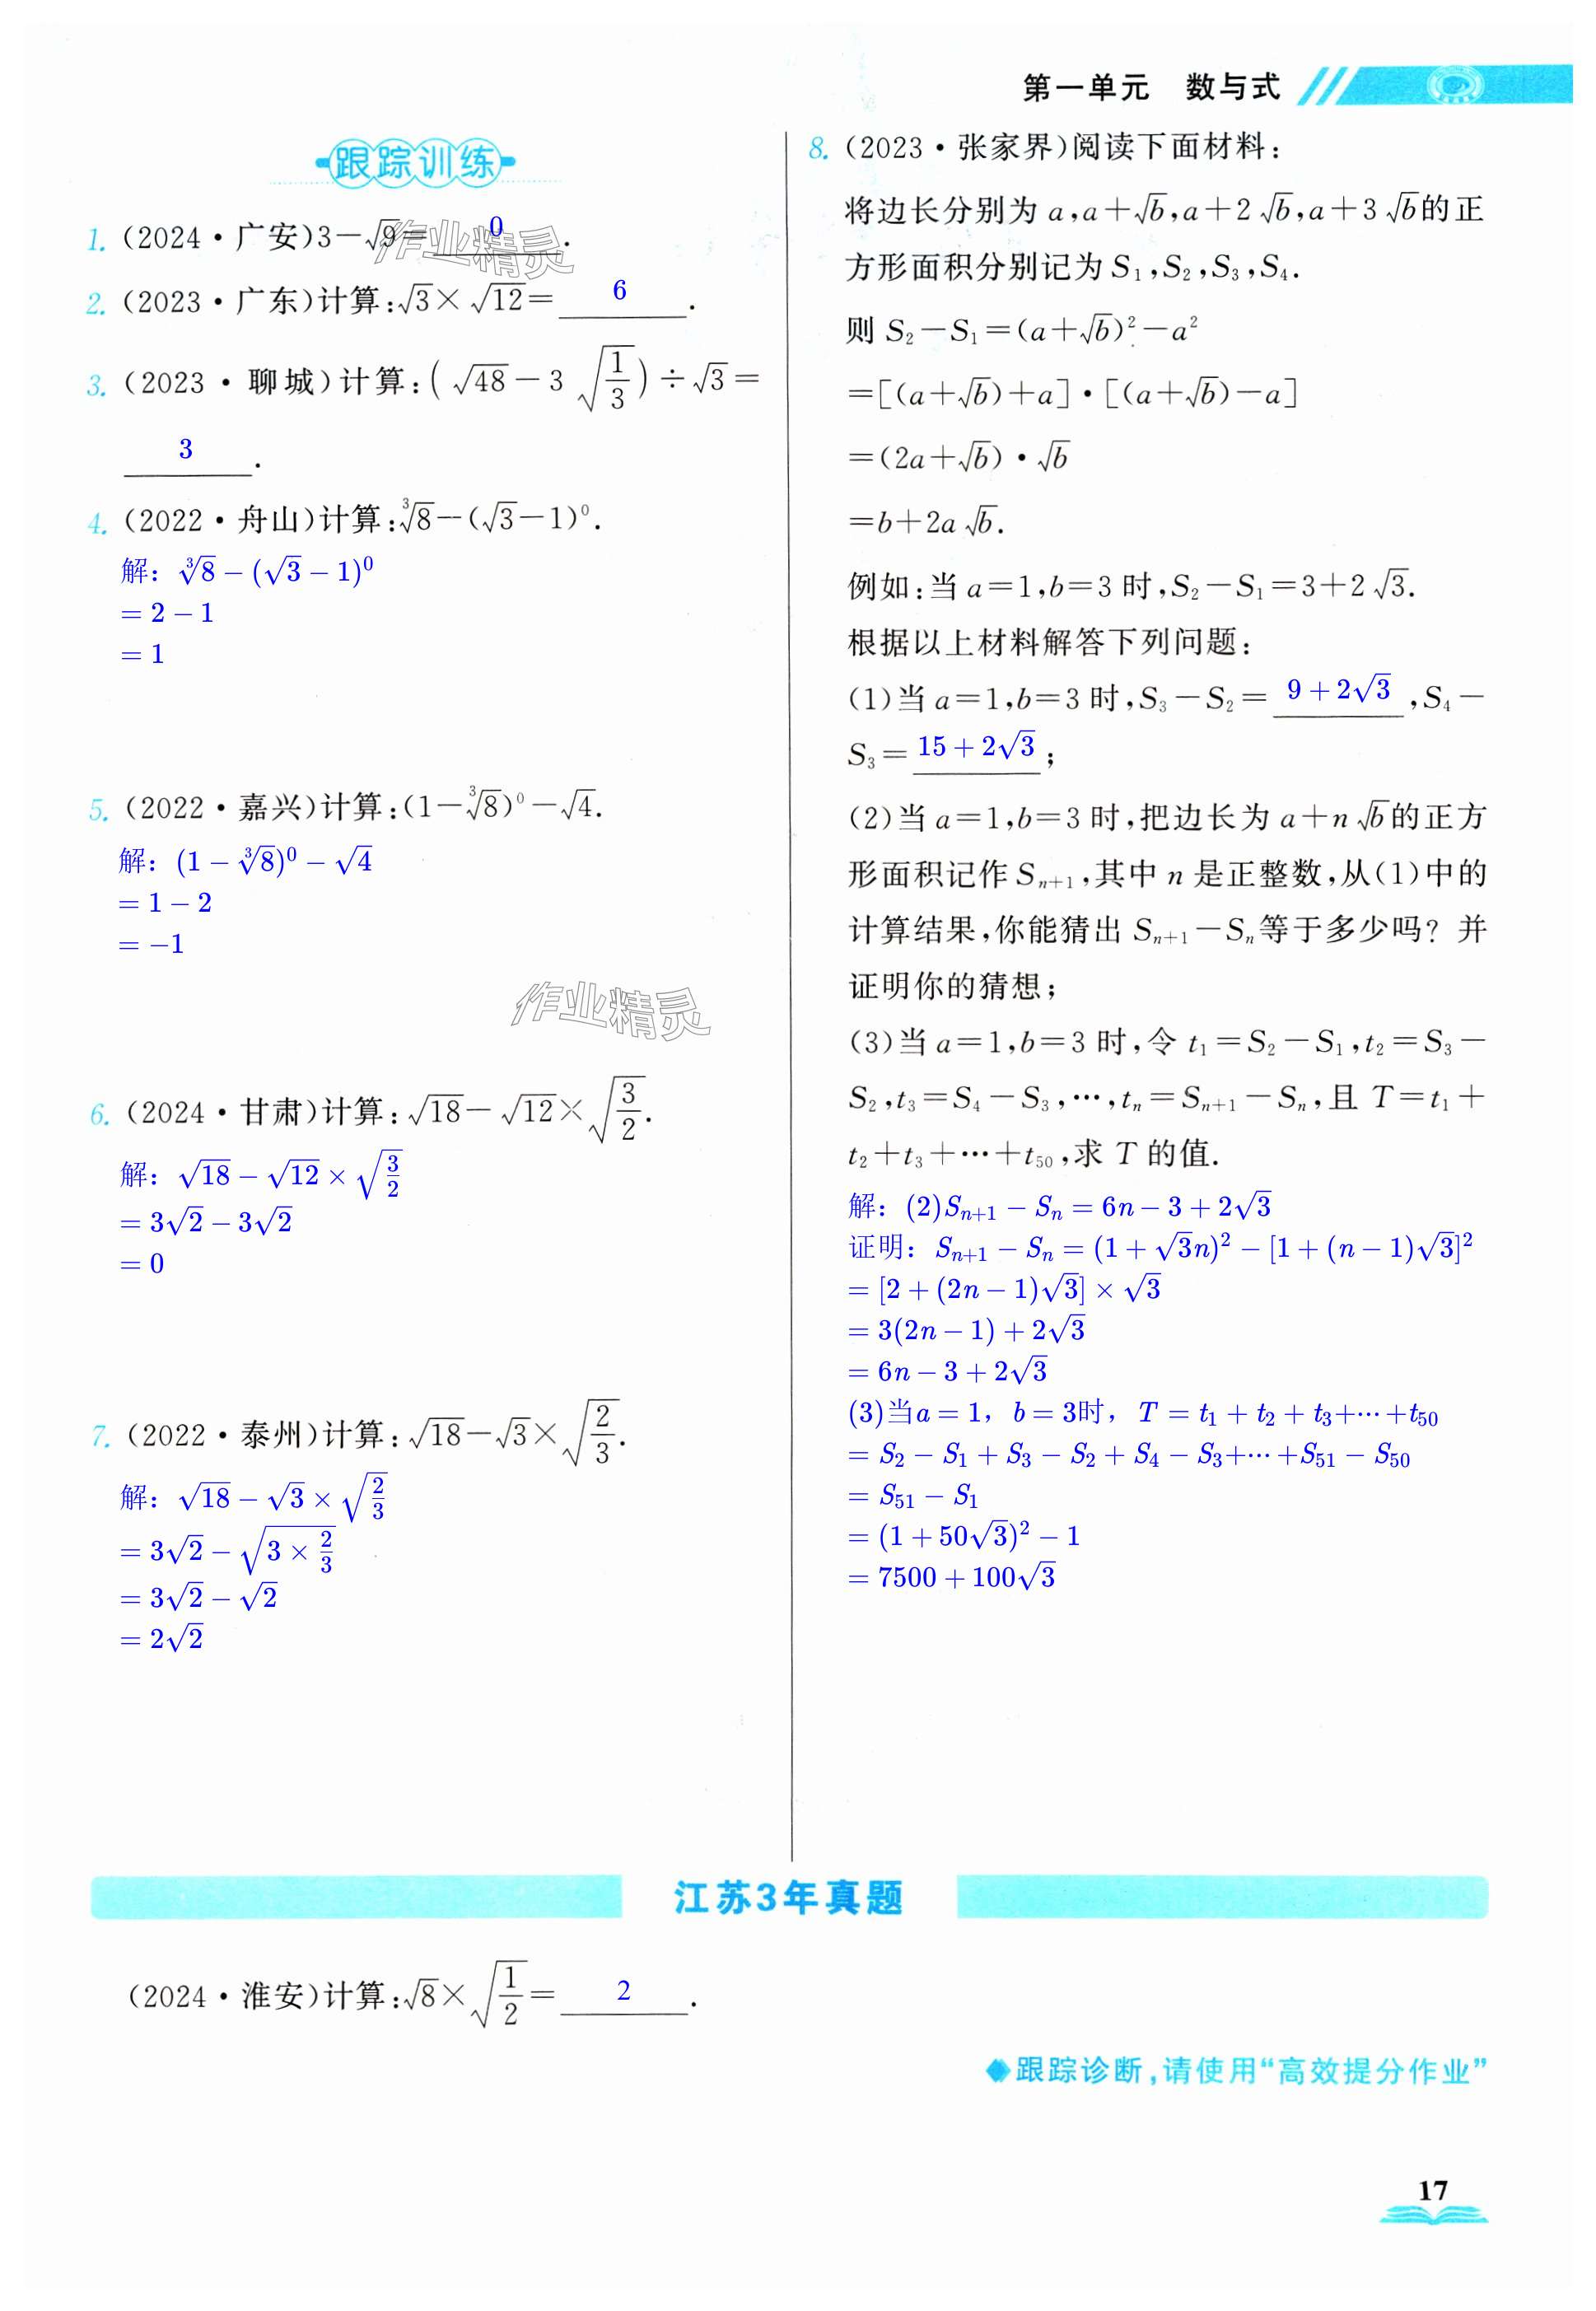 第一单元 数与式
跟踪训练
1. (2024·广安)3-√9=0.
2. (2023·广东)计算:√3×√12=6.
3. (2023·聊城)计算:(√48-3√(1/3))÷√3=
3.
4. (2022·舟山)计算:∛8-(√3-1)⁰.
解：∛8-(√3-1)⁰
=2-1
=1
5. (2022·嘉兴)计算:(1-∛8)⁰-√4.
解：(1-∛8)⁰-√4
=1-2
=-1
6. (2024·甘肃)计算:√18-√12×√(3/2).
解：√18-√12×√(3/2)
=3√2-3√2
=0
7. (2022·泰州)计算:√18-√3×√(2/3).
解：√18-√3×√(2/3)
=3√2-√(3×2/3)
=3√2-√2
=2√2
8. (2023·张家界)阅读下面材料:
将边长分别为a,a+√b,a+2√b,a+3√b的正
方形面积分别记为S₁,S₂,S₃,S₄.
则S₂-S₁=(a+√b)²-a²
=[(a+√b)+a]·[(a+√b)-a]
=(2a+√b)·√b
=b+2a√b.
例如:当a=1,b=3时,S₂-S₁=3+2√3.
根据以上材料解答下列问题:
(1)当a=1,b=3时,S₃-S₂=9+2√3,S₄-
S₃=15+2√3;
(2)当a=1,b=3时,把边长为a+n√b的正方
形面积记作Sₙ₊₁,其中n是正整数,从(1)中的
计算结果,你能猜出Sₙ₊₁-Sₙ等于多少吗? 并
证明你的猜想;
(3)当a=1,b=3时,令t₁=S₂-S₁,t₂=S₃-
S₂,t₃=S₄-S₃,…,tₙ=Sₙ₊₁-Sₙ,且T=t₁+
t₂+t₃+…+t₅₀,求T的值.
解：(2)Sₙ₊₁-Sₙ=6n-3+2√3
证明：Sₙ₊₁-Sₙ=(1+√3n)²-[1+(n-1)√3]²
=[2+(2n-1)√3]×√3
=3(2n-1)+2√3
=6n-3+2√3
(3)当a=1，b=3时，T=t₁+t₂+t₃+⋯+t₅₀
=S₂-S₁+S₃-S₂+S₄-S₃+⋯+S₅₁-S₅₀
=S₅₁-S₁
=(1+50√3)²-1
=7500+100√3
作业精灵
作业精灵
江苏3年真题
(2024·淮安)计算:√8×√(1/2)=2.
◆跟踪诊断,请使用“高效提分作业”
17